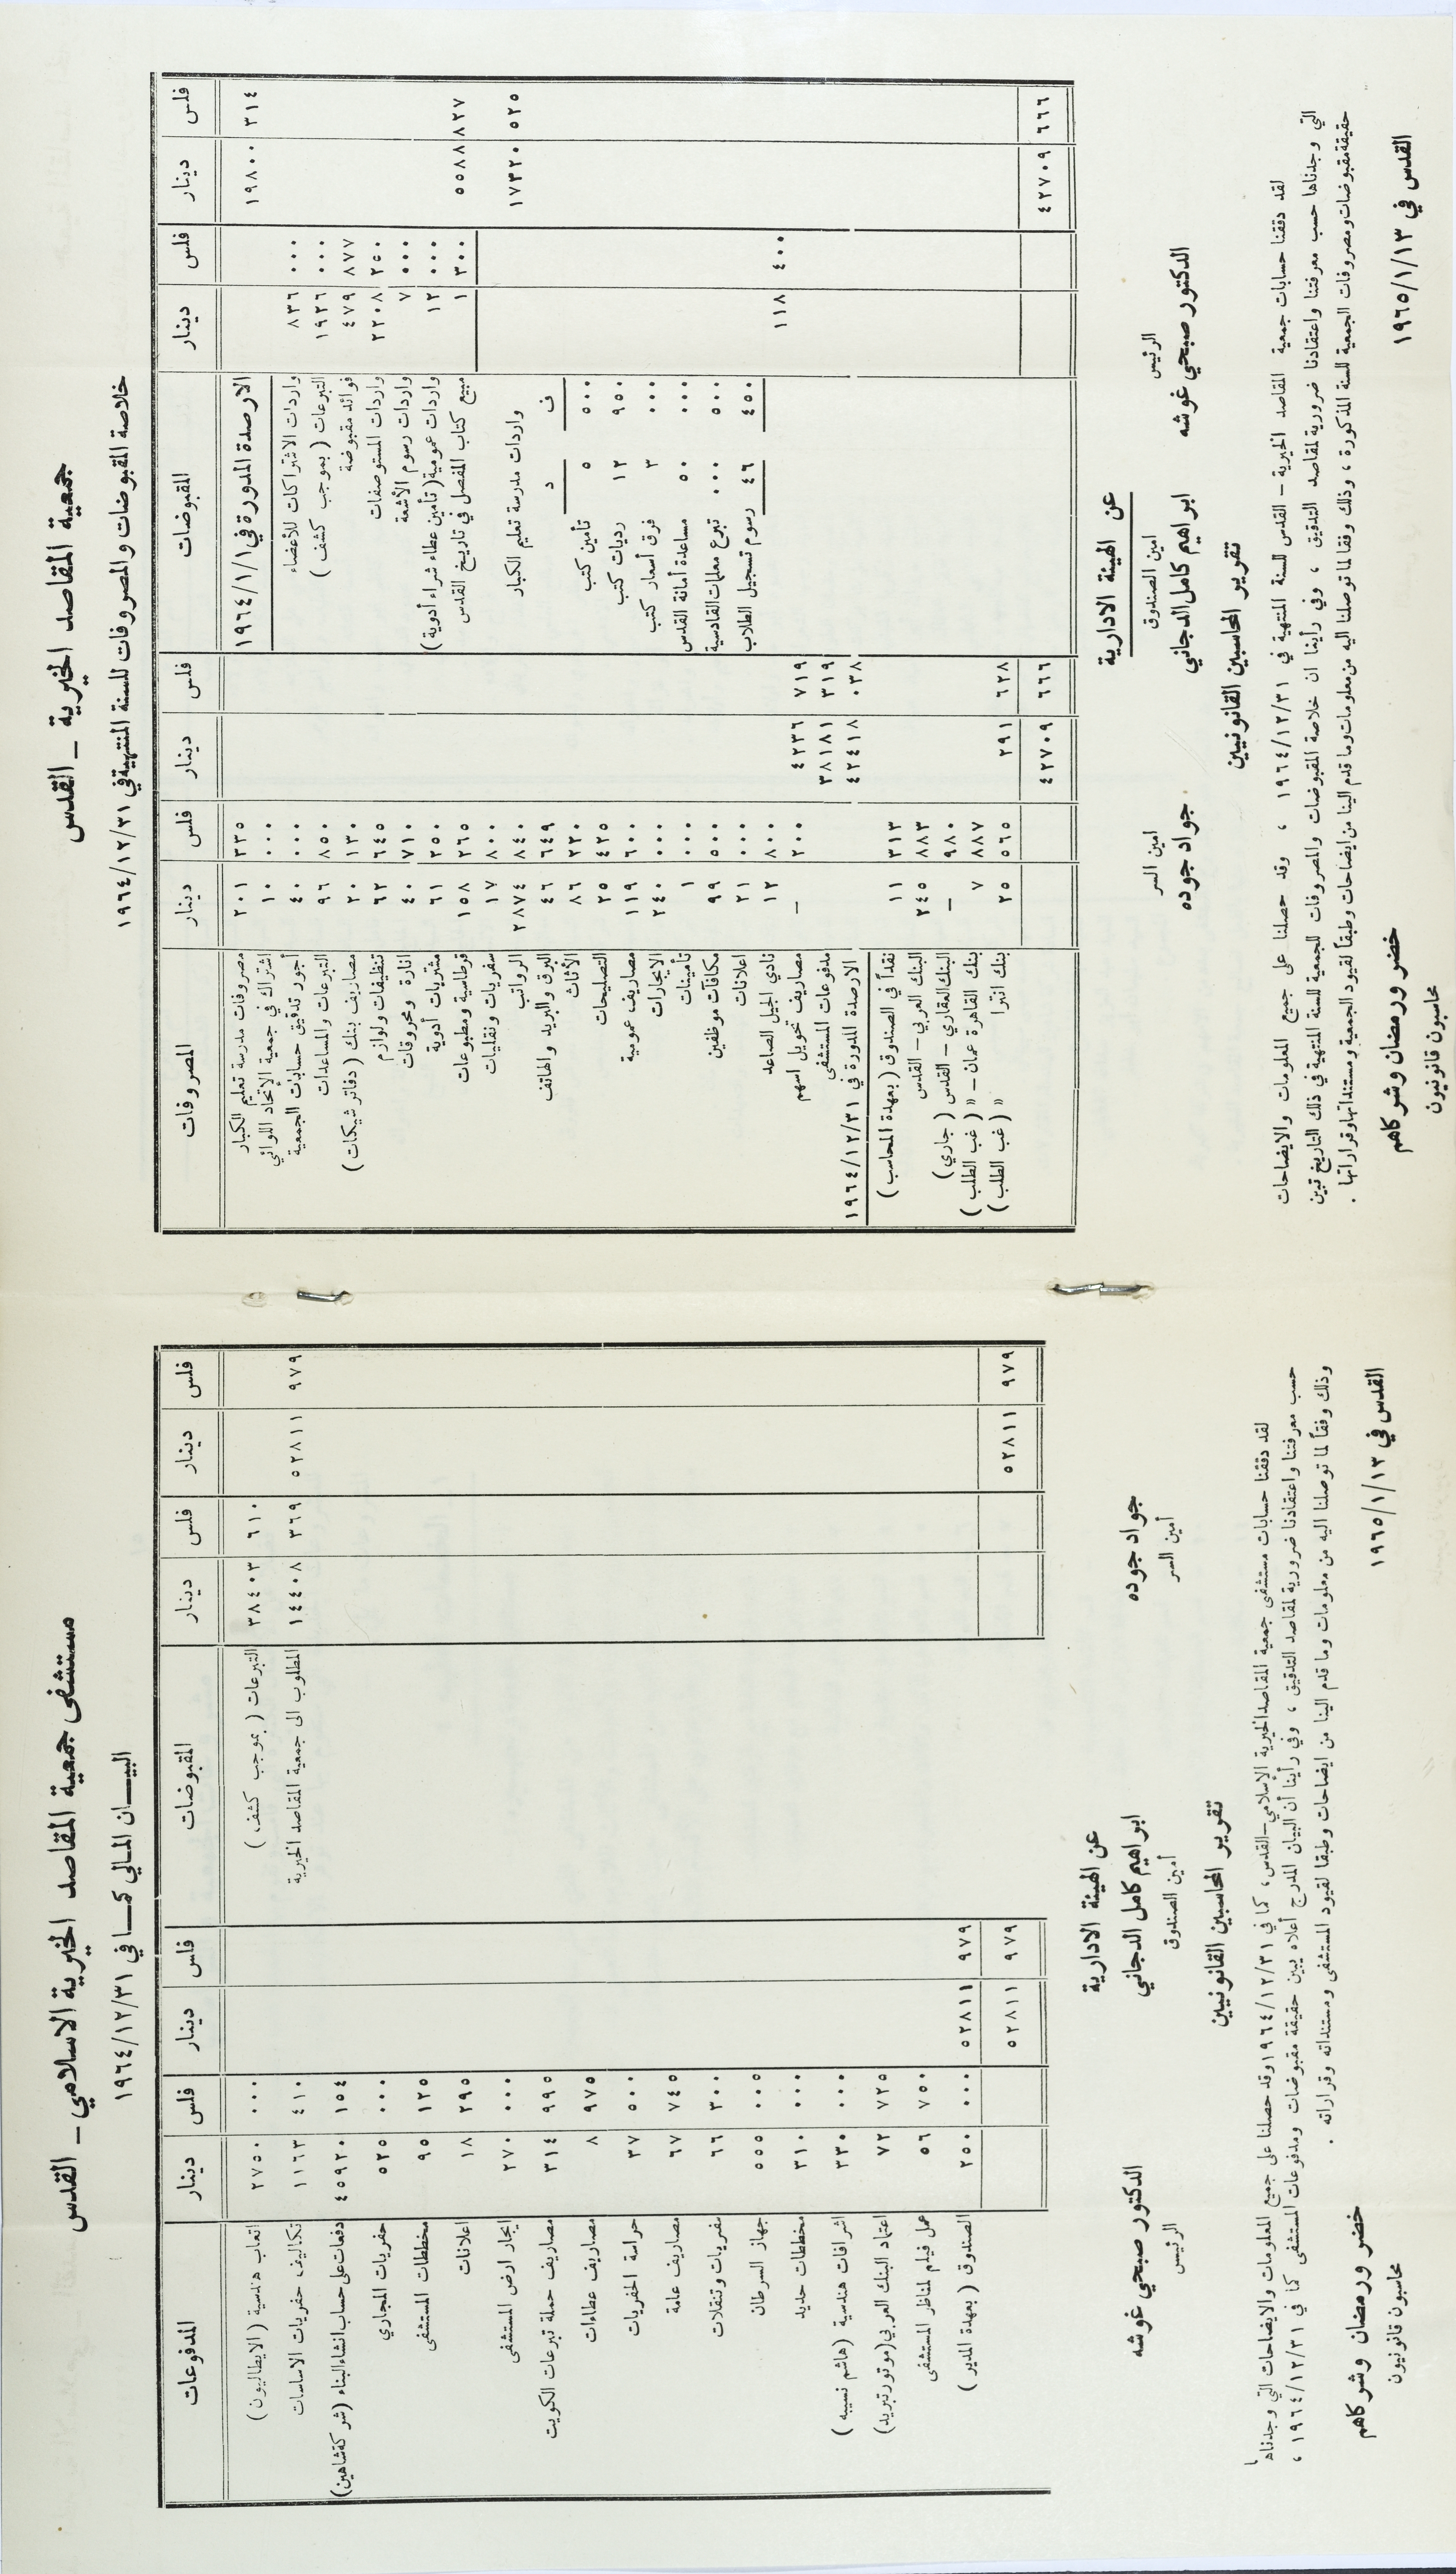 جمعية المقاصد الخيرية _ القدس
خلاصة المقبوضات والمصروفات للسنة المنتهية في ١٩٦٤/١٢/٣١
فلس دينار فلس دينار المقبوضات فلس دينار فلس دينار المصروفات
٣١٤ ١٩٨٠٠ الارصدة المدورة في ١٩٦٤/١/١
٠٠٠ ٨٣٦ واردات الاشتراكات للأعضاء
٠٠٠ ١٩٢٦ التبرعات ( بموجب كشف )
٨٧٧ ٤٧٩ فوائد مقبوضة
٢٥٠ ٢٢٠٨ واردات المستوصفات
٠٠٠ ٧ واردات رسوم الأشعة
٠٠٠ ١٢ واردات عمومية ( تأمين عطاء شراء أدوية )
٨٢٧ ٥٥٨٨ ٣٠٠ ١ مبيع كتاب المفصل في تاريخ القدس
٥٢٥ ١٧٣٢٠ واردات مدرسة تعليم الكبار
ف د
٥٠٠ ٥ تأمين كتب
٩٥٠ ١٢ رديات كتب
٠٠٠ ٣ فرق أسعار كتب
٠٠٠ ٥٠ مساعدة أمانة القدس
٥٠٠ ٠٠٠ تبرع معلمات القادسية
٤٥٠ ٤٦ رسوم تسجيل الطلاب
٤٠٠ ١١٨
٦٦٦ ٤٢٧٠٩
٣٣٥ ٢٠١ مصروفات مدرسة تعليم الكبار
٠٠٠ ١٠ اشتراك في جمعية الإتحاد اللوائي
٠٠٠ ٤٠ أجور تدقيق حسابات الجمعية
٨٥٠ ٩٦ التبرعات والمساعدات
١٣٠ ٢٠ مصاريف بنك ( دفاتر شيكات )
٦٤٥ ٦٢ تنظيفات ولوازم
٧١٠ ٤٠ انارة ومحروقات
٢٥٠ ٦١ مشتريات أدوية
٢٦٥ ١٥٨ قرطاسية ومطبوعات
٨٠٠ ١٧ سفريات ونقليات
٨٤٠ ٢٨٧٤ الرواتب
٦٤٩ ٤٦ البرق والبريد والهاتف
٢٢٠ ٨٦ الأثاث
٤٢٥ ٢٥ التصليحات
٦٠٠ ١١٩ مصاريف عمومية
٠٠٠ ٢٤٠ الايجارات
٠٠٠ ١ تأمينات
٥٠٠ ٩٩ مكافآت موظفين
٠٠٠ ٢١ اعلانات
٨٠٠ ١٢ نادي الجيل الصاعد
٧١٩ ٤٢٣٦ ٢٠٠ — مصاريف تحويل اسهم
٣١٩ ٣٨١٨١ مدفوعات المستشفى
٠٣٨ ٤٢٤١٨ الارصدة المدورة في ١٩٦٤/١٢/٣١
٣١٣ ١١ نقداً في الصندوق ( بعهدة المحاسب )
٨٨٣ ٢٤٥ البنك العربي – القدس
٩٨٠ — البنك العقاري – القدس ( جاري )
٨٨٧ ٧ بنك القاهرة عمان – » ( غب الطلب )
٦٢٨ ٢٩١ ٥٦٥ ٢٥ بنك انترا » ( غب الطلب )
٦٦٦ ٤٢٧٠٩
عن الهيئة الادارية
الرئيس امين الصندوق امين السر
الدكتور صبحي غوشه ابراهيم كامل الدجاني جواد جوده
تقرير المحاسبين القانونيين
لقد دققنا حسابات جمعية المقاصد الخيرية – القدس للسنة المنتهية في ١٩٦٤/١٢/٣١ ، وقد حصلنا على جميع المعلومات والايضاحات
التي وجدناها حسب معرفتنا واعتقادنا ضرورية لمقاصد التدقيق ، وفي رأينا ان خلاصة المقبوضات والمصروفات للجمعية للسنة المنتهية في ذلك التاريخ تبين
حقيقة مقبوضات ومصروفات الجمعية للسنة المذكورة ، وذلك وفقا لما توصلنا اليه من معلومات وما قدم الينا من ايضاحات وطبقاً لقيود الجمعية ومستنداتها وقراراتها .
خضر ورمضان وشركاهم
القدس في ١٩٦٥/١/١٣ محاسبون قانونيون
مستشفى جمعية المقاصد الخيرية الاسلامي – القدس
البيـــان المالي كمـــا في ١٩٦٤/١٢/٣١
فلس دينار فلس دينار المقبوضات فلس دينار فلس دينار المدفوعات
٦١٠ ٣٨٤٠٣ التبرعات ( بموجب كشف )
٩٧٩ ٥٢٨١١ ٣٦٩ ١٤٤٠٨ المطلوب الى جمعية المقاصد الخيرية
٩٧٩ ٥٢٨١١
٠٠٠ ٢٧٥٠ اتعاب هندسية ( الايطاليون )
٤١٠ ١١٦٣ تكاليف حفريات الاساسات
١٥٤ ٤٥٩٢٠ دفعات على حساب انشاء البناء ( شركة شاهين )
٠٠٠ ٥٢٥ حفريات المجاري
١٢٥ ٩٥ مخططات المستشفى
٢٩٥ ١٨ اعلانات
٠٠٠ ٢٧٠ ايجار ارض المستشفى
٩٩٥ ٣١٤ مصاريف حملة تبرعات الكويت
٩٧٥ ٨ مصاريف عطاءات
٥٠٠ ٣٧ حراسة الحفريات
٧٤٥ ٦٧ مصاريف عامة
٣٠٠ ٦٦ سفريات وتنقلات
٠٠٠ ٥٥٥ جهاز السرطان
٠٠٠ ٣١٠ مخططات حديد
٠٠٠ ٣٣٠ اشرافات هندسية ( هاشم نسيبه )
٧٢٥ ٧٢ اعتماد البنك العربي ( موتور تبريد )
٧٥٠ ٥٦ عمل فيلم لمناظر المستشفى
٩٧٩ ٥٢٨١١ ٠٠٠ ٢٥٠ الصندوق ( بعهدة المدير )
٩٧٩ ٥٢٨١١
عن الهيئة الادارية
جواد جوده ابراهيم كامل الدجاني الدكتور صبحي غوشه
أمين السر أمين الصندوق الرئيس
تقرير المحاسبين القانونيين
لقد دققنا حسابات مستشفى جمعية المقاصد الخيرية الإسلامي – القدس ، كما في ١٩٦٤/١٢/٣١ وقد حصلنا على جميع المعلومات والايضاحات التي وجدناها
حسب معرفتنا واعتقادنا ضرورية لمقاصد التدقيق ، وفي رأينا أن البيان المدرج أعلاه يبين حقيقة مقبوضات ومدفوعات المستشفى كما في ١٩٦٤/١٢/٣١ ،
وذلك وفقاً لما توصلنا اليه من معلومات وما قدم الينا من ايضاحات وطبقا لقيود المستشفى ومستنداته وقراراته .
خضر ورمضان وشركاهم
القدس في ١٩٦٥/١/١٣ محاسبون قانونيون